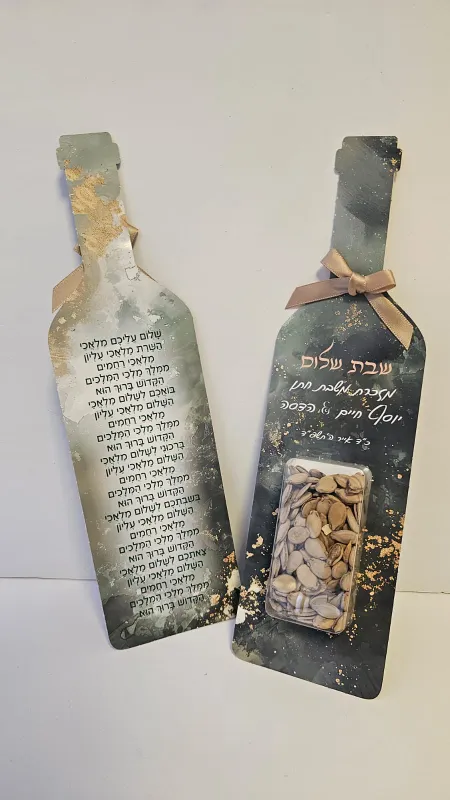 שָׁלוֹם עֲלֵיכֶם מַלְאֲכֵי
הַשָּׁרֵת מַלְאֲכֵי עֶלְיוֹן
מַלְאֲכֵי רַחֲמִים
מִמֶּלֶךְ מַלְכֵי הַמְּלָכִים
הַקָּדוֹשׁ בָּרוּךְ הוּא
בּוֹאֲכֶם לְשָׁלוֹם מַלְאֲכֵי
הַשָּׁלוֹם מַלְאֲכֵי עֶלְיוֹן
מַלְאֲכֵי רַחֲמִים
מִמֶּלֶךְ מַלְכֵי הַמְּלָכִים
הַקָּדוֹשׁ בָּרוּךְ הוּא
בָּרְכוּנִי לְשָׁלוֹם מַלְאֲכֵי
הַשָּׁלוֹם מַלְאֲכֵי עֶלְיוֹן
מַלְאֲכֵי רַחֲמִים
מִמֶּלֶךְ מַלְכֵי הַמְּלָכִים
הַקָּדוֹשׁ בָּרוּךְ הוּא
בְּשִׁבְתְּכֶם לְשָׁלוֹם מַלְאֲכֵי
הַשָּׁלוֹם מַלְאֲכֵי עֶלְיוֹן
מַלְאֲכֵי רַחֲמִים
מִמֶּלֶךְ מַלְכֵי הַמְּלָכִים
הַקָּדוֹשׁ בָּרוּךְ הוּא
צֵאתְכֶם לְשָׁלוֹם מַלְאֲכֵי
הַשָּׁלוֹם מַלְאֲכֵי עֶלְיוֹן
מַלְאֲכֵי רַחֲמִים
מִמֶּלֶךְ מַלְכֵי הַמְּלָכִים
הַקָּדוֹשׁ בָּרוּךְ הוּא
שבת שלום
מזכרת משבת חתן
יוסף חיים הדסה
כ"ד אייר ה'תשפ"ד